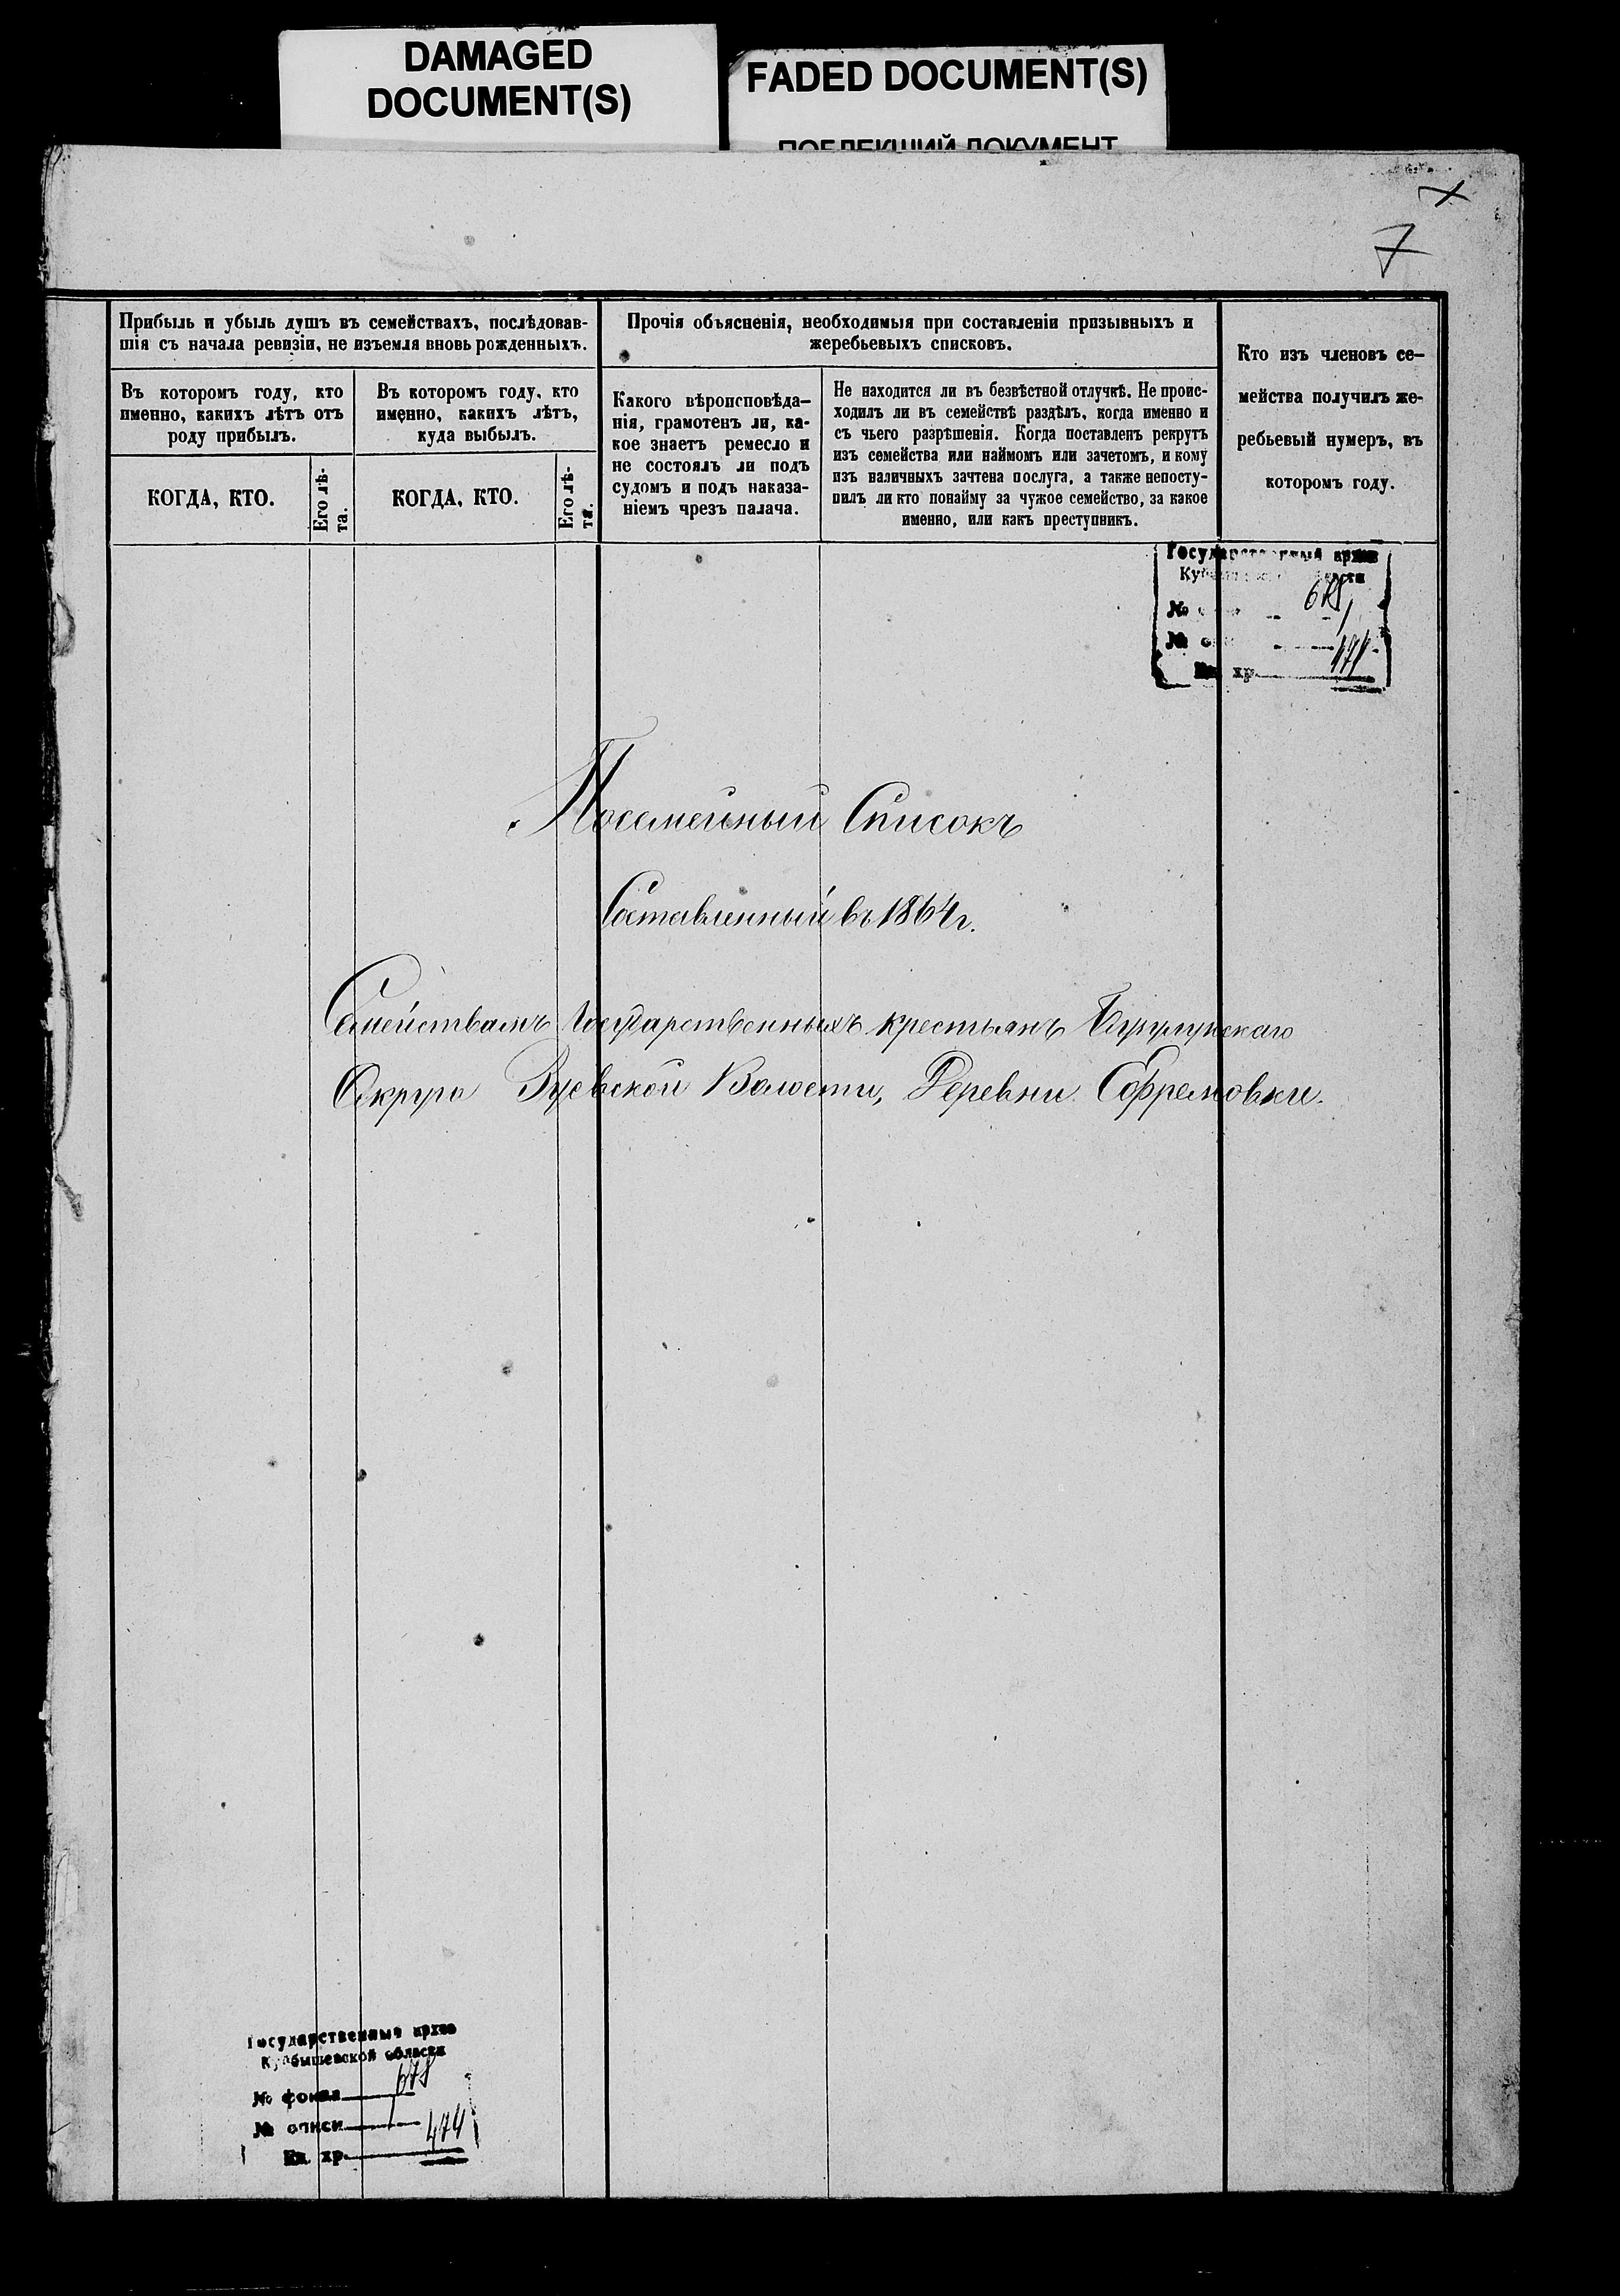 DAMAGED
DOCUMENT(S)
FADED DOCUMENT(S)
ПОБЛЕКШИЙ ДОКУМЕНТ
7
Прибыль и убыль душъ въ семействахъ, послѣдовав-
шія съ начала ревизіи, не изъемля вновь рожденныхъ.
Въ которомъ году, кто
именно, какихъ лѣтъ отъ
роду прибылъ.
КОГДА, КТО.
Его лѣ-
та.
Въ которомъ году, кто
именно, какихъ лѣтъ,
куда выбылъ.
КОГДА, КТО.
Его лѣ-
та.
Прочія объясненія, необходимыя при составленіи призывныхъ и
жеребьевыхъ списковъ.
Какого вѣроисповѣда-
нія, грамотенъ ли, ка-
кое знаетъ ремесло и
не состоялъ ли подъ
судомъ и подъ наказа-
ніемъ чрезъ палача.
Не находится ли въ безвѣстной отлучкѣ. Не проис-
ходилъ ли въ семействѣ раздѣлъ, когда именно и
съ чьего разрѣшенія. Когда поставленъ рекрутъ
изъ семейства или наймомъ или зачетомъ, и кому
изъ наличныхъ зачтена послуга, а также непосту-
пилъ ли кто понайму за чужое семейство, за какое
именно, или какъ преступникъ.
Кто изъ членовъ се-
мейства получилъ же-
ребьевый нумеръ, въ
которомъ году.
Государственный архив
№
№
хр
Посемейный Списокъ
Составленный въ 1864 г.
Семействамъ Государственныхъ крестьянъ Бузулукскаго
Округа Зуевской Волости, Деревни Ефремовки.
Государственный архив
Куйбышевской области
№ фонда 678
№ описи 1
Ед. хр. 474